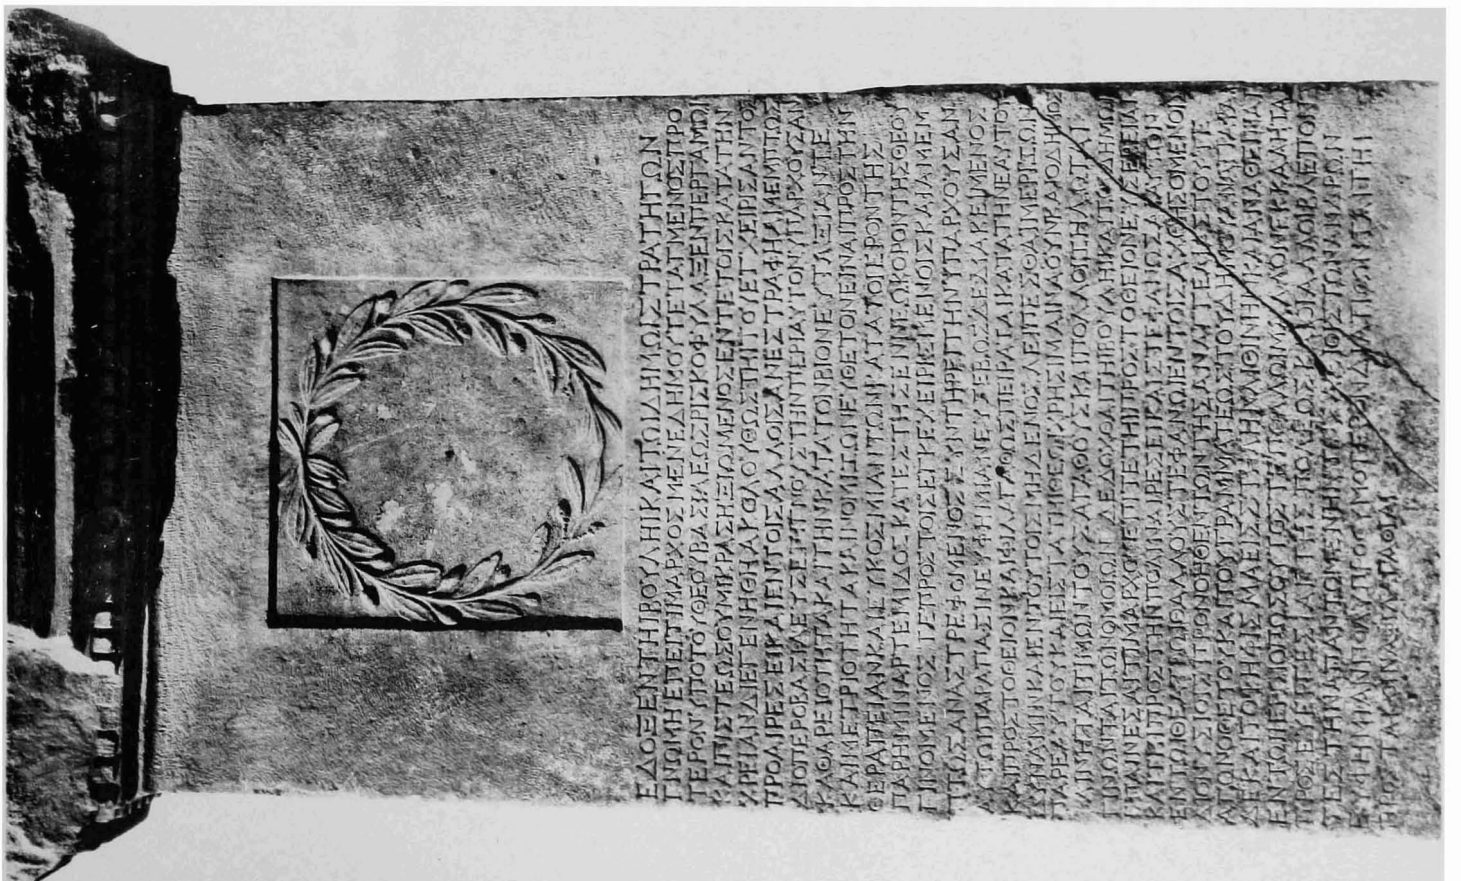 ΕΔΟΞΕΝΤΗΙΒΟΥΛΗΙΚΑΙΤΩΙΔΗΜΩΙΣΤΡΑΤΗΓΩΝ
ΓΝΩΜΗΕΠΕΙΤΙΜΑΡΧΟΣΜΕΝΕΔΗΜΟΥΤΕΤΑΓΜΕΝΟΣΠΡΟ
ΤΕΡΟΝΥΠΟΤΟΥΘΕΟΥΒΑΣΙΛΕΩΣΡΙΣΚΟΦΥΛΑΞΕΝΠΕΡΓΑΜΩΙ
ΚΑΙΠΙΣΤΕΩΣΟΥΜΙΚΡΑΣΗΞΙΩΜΕΝΟΣΕΝΤΕΤΟΙΣΚΑΤΑΤΗΝ
ΧΡΕΙΑΝΔΙΕΓΕΝΗΘΗΑΚΟΛΟΥΘΩΣΤΗΙΤΟΥΕΓΧΕΙΡΙΣΑΝΤΟΣ
ΠΡΟΑΙΡΕΣΕΙΚΑΙΕΝΤΟΙΣΑΛΛΟΙΣΑΝΕΣΤΡΑΦΗΑΜΕΜΠΤΩΣ
ΔΙΟΠΕΡΟΒΑΣΙΛΕΥΣ ΤΗΝΠΕΡΙΑΥΤΟΝΥΠΑΡΧΟΥΣΑΝ
ΚΑΘΑΡΕΙΟΤΗΤΑΚΑΙΤΗΝΚΑΤΑΤΟΝΒΙΟΝΕΥΤΑΞΙΑΝΤΕ
ΚΑΙΜΕΤΡΙΟΤΗΤΑΚΑΙΝΟΜΙΖΩΝΕΥΘΕΤΟΝΕΙΝΑΙΠΡΟΣΤΗΝ
ΘΕΡΑΠΕΙΑΝΚΑΙΕΥΚΟΣΜΙΑΝΤΩΝΚΑΤΑΤΟΙΕΡΟΝΤΗΣ
ΠΑΡΗΜΙΝΑΡΤΕΜΙΔΟΣΚΑΤΕΣΤΗΣΕΝΝΕΩΚΟΡΟΝΤΗΣΘΕΟΥ
ΓΙΝΟΜΕΝΟΣΤΕΠΡΟΣΤΟΙΣΕΓΚΕΧΕΙΡΙΣΜΕΝΟΙΣΚΑΙΑΜΕΜ
ΠΤΩΣΑΝΑΣΤΡΕΦΟΜΕΝΟΣΣΥΝΤΗΡΕΙΤΗΝΥΠΑΡΧΟΥΣΑΝ
ΑΥΤΩΙΠΑΡΑΠΑΣΙΝΕΥΦΗΜΙΑΝΕΥΣΕΒΩΣΔΕΔΙΑΚΕΙΜΕΝΟΣ
ΚΑΙΠΡΟΣΤΟΘΕΙΟΝΚΑΙΦΙΛΑΓΑΘΩΣΠΕΙΡΑΤΑΙΚΑΤΑΤΗΝΕΑΥΤΟΥ
ΔΥΝΑΜΙΝΚΑΙΕΝΤΟΥΤΟΙΣΜΗΔΕΝΟΣΛΕΙΠΕΣΘΑΙΜΕΡΙΖΩΝ
ΠΑΡΕΑΥΤΟΥΚΑΙΕΙΣΤΑΤΗΙΘΕΩΙΧΡΗΣΙΜΑΙΝΑΟΥΝΚΑΙΟΔΗΜΟΣ
ΦΑΙΝΗΤΑΙΤΙΜΩΝΤΟΥΣΑΓΑΘΟΥΣΚΑΙΠΟΛΛΟΙΖΗΛΩΤΑΙ
ΓΙΝΩΝΤΑΙΤΩΝΟΜΟΙΩΝΔΕΔΟΧΘΑΙΤΗΙΒΟΥΛΗΙΚΑΙΤΩΙΔΗΜΩΙ
ΕΠΑΙΝΕΣΑΙΤΙΜΑΡΧΟΝΕΠΙΤΕΤΗΙΠΡΟΣΤΟΘΕΙΟΝΕΥΣΕΒΕΙΑΙ
ΚΑΙΤΗΙΠΡΟΣΤΗΝΠΟΛΙΝΑΙΡΕΣΕΙΚΑΙΣΤΕΦΑΝΩΣΑΙΑΥΤΟΝ
ΕΝΤΩΙΘΕΑΤΡΩΙΘΑΛΛΟΥΣΤΕΦΑΝΩΙΕΝΤΟΙΣΑΧΘΗΣΟΜΕΝΟΙΣ
ΔΙΟΝΥΣΙΟΙΣΠΡΟΝΟΗΘΕΝΤΩΝΤΗΣΑΝΑΓΓΕΛΙΑΣΤΟΥΤΕ
ΑΓΩΝΟΘΕΤΟΥΚΑΙΤΟΥΓΡΑΜΜΑΤΕΩΣΤΟΥΔΗΜΟΥΑΝΑΓΡΑΨΑΙ
ΔΕΚΑΙΤΟΨΗΦΙΣΜΑΕΙΣΣΤΗΛΗΝΛΙΘΙΝΗΝΚΑΙΑΝΑΘΕΙΝΑΙ
ΕΝΤΩΙΙΕΡΩΙΟΠΩΣΟΥΤΟΣΤΕΠΟΛΛΩΙΜΑΛΛΟΝ